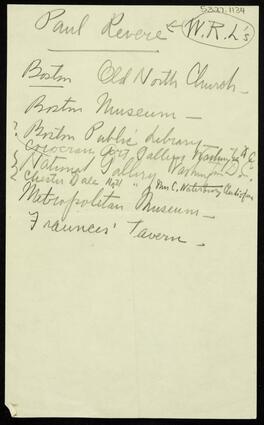 5322.1124
Paul Revere ← W.R.L's
Boston Old North Church
Boston Museum —
? Boston Public Library
Corcoran Art Gallery Washington D.C.
National Gallery Washington D.C.
Chester Dale " Mrs C.
Metropolitan Museum —
Fraunces' Tavern —